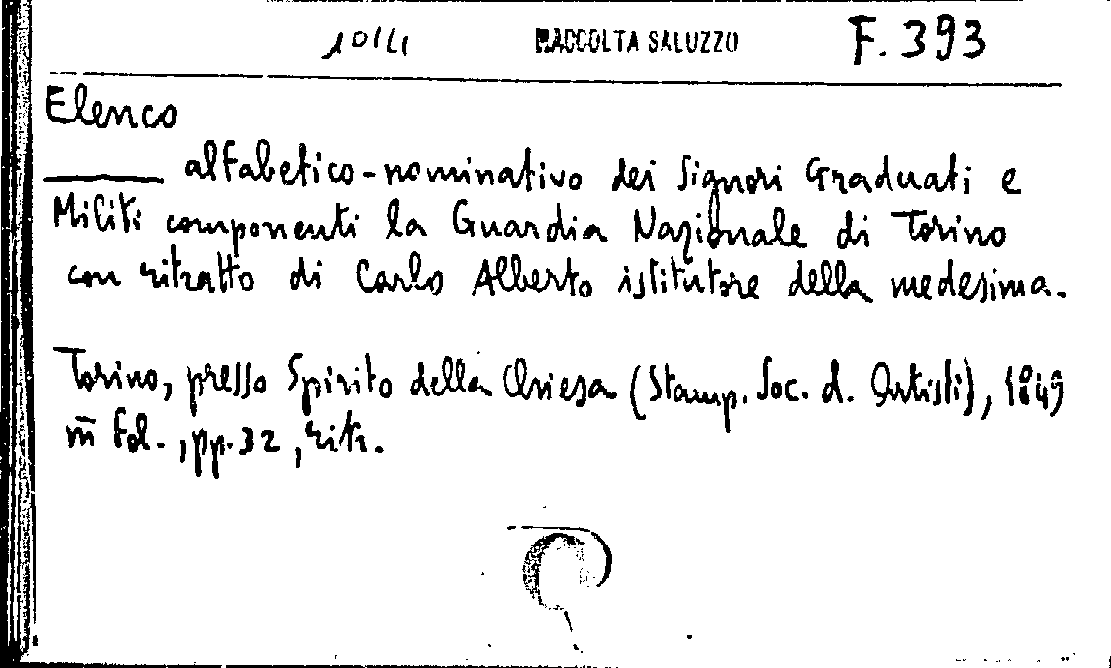 RACCOLTA SALUZZO F. 393
Elenco
alfabetico-nominativo dei Signori Graduati e
Militi componenti la Guardia Nazionale di Torino
con ritratto di Carlo Alberto istitutore della medesima.
Torino, presso Spirito della Chiesa (Stamp. Soc. d. Artisti), 1849
in fol., pp. 32, ritr.